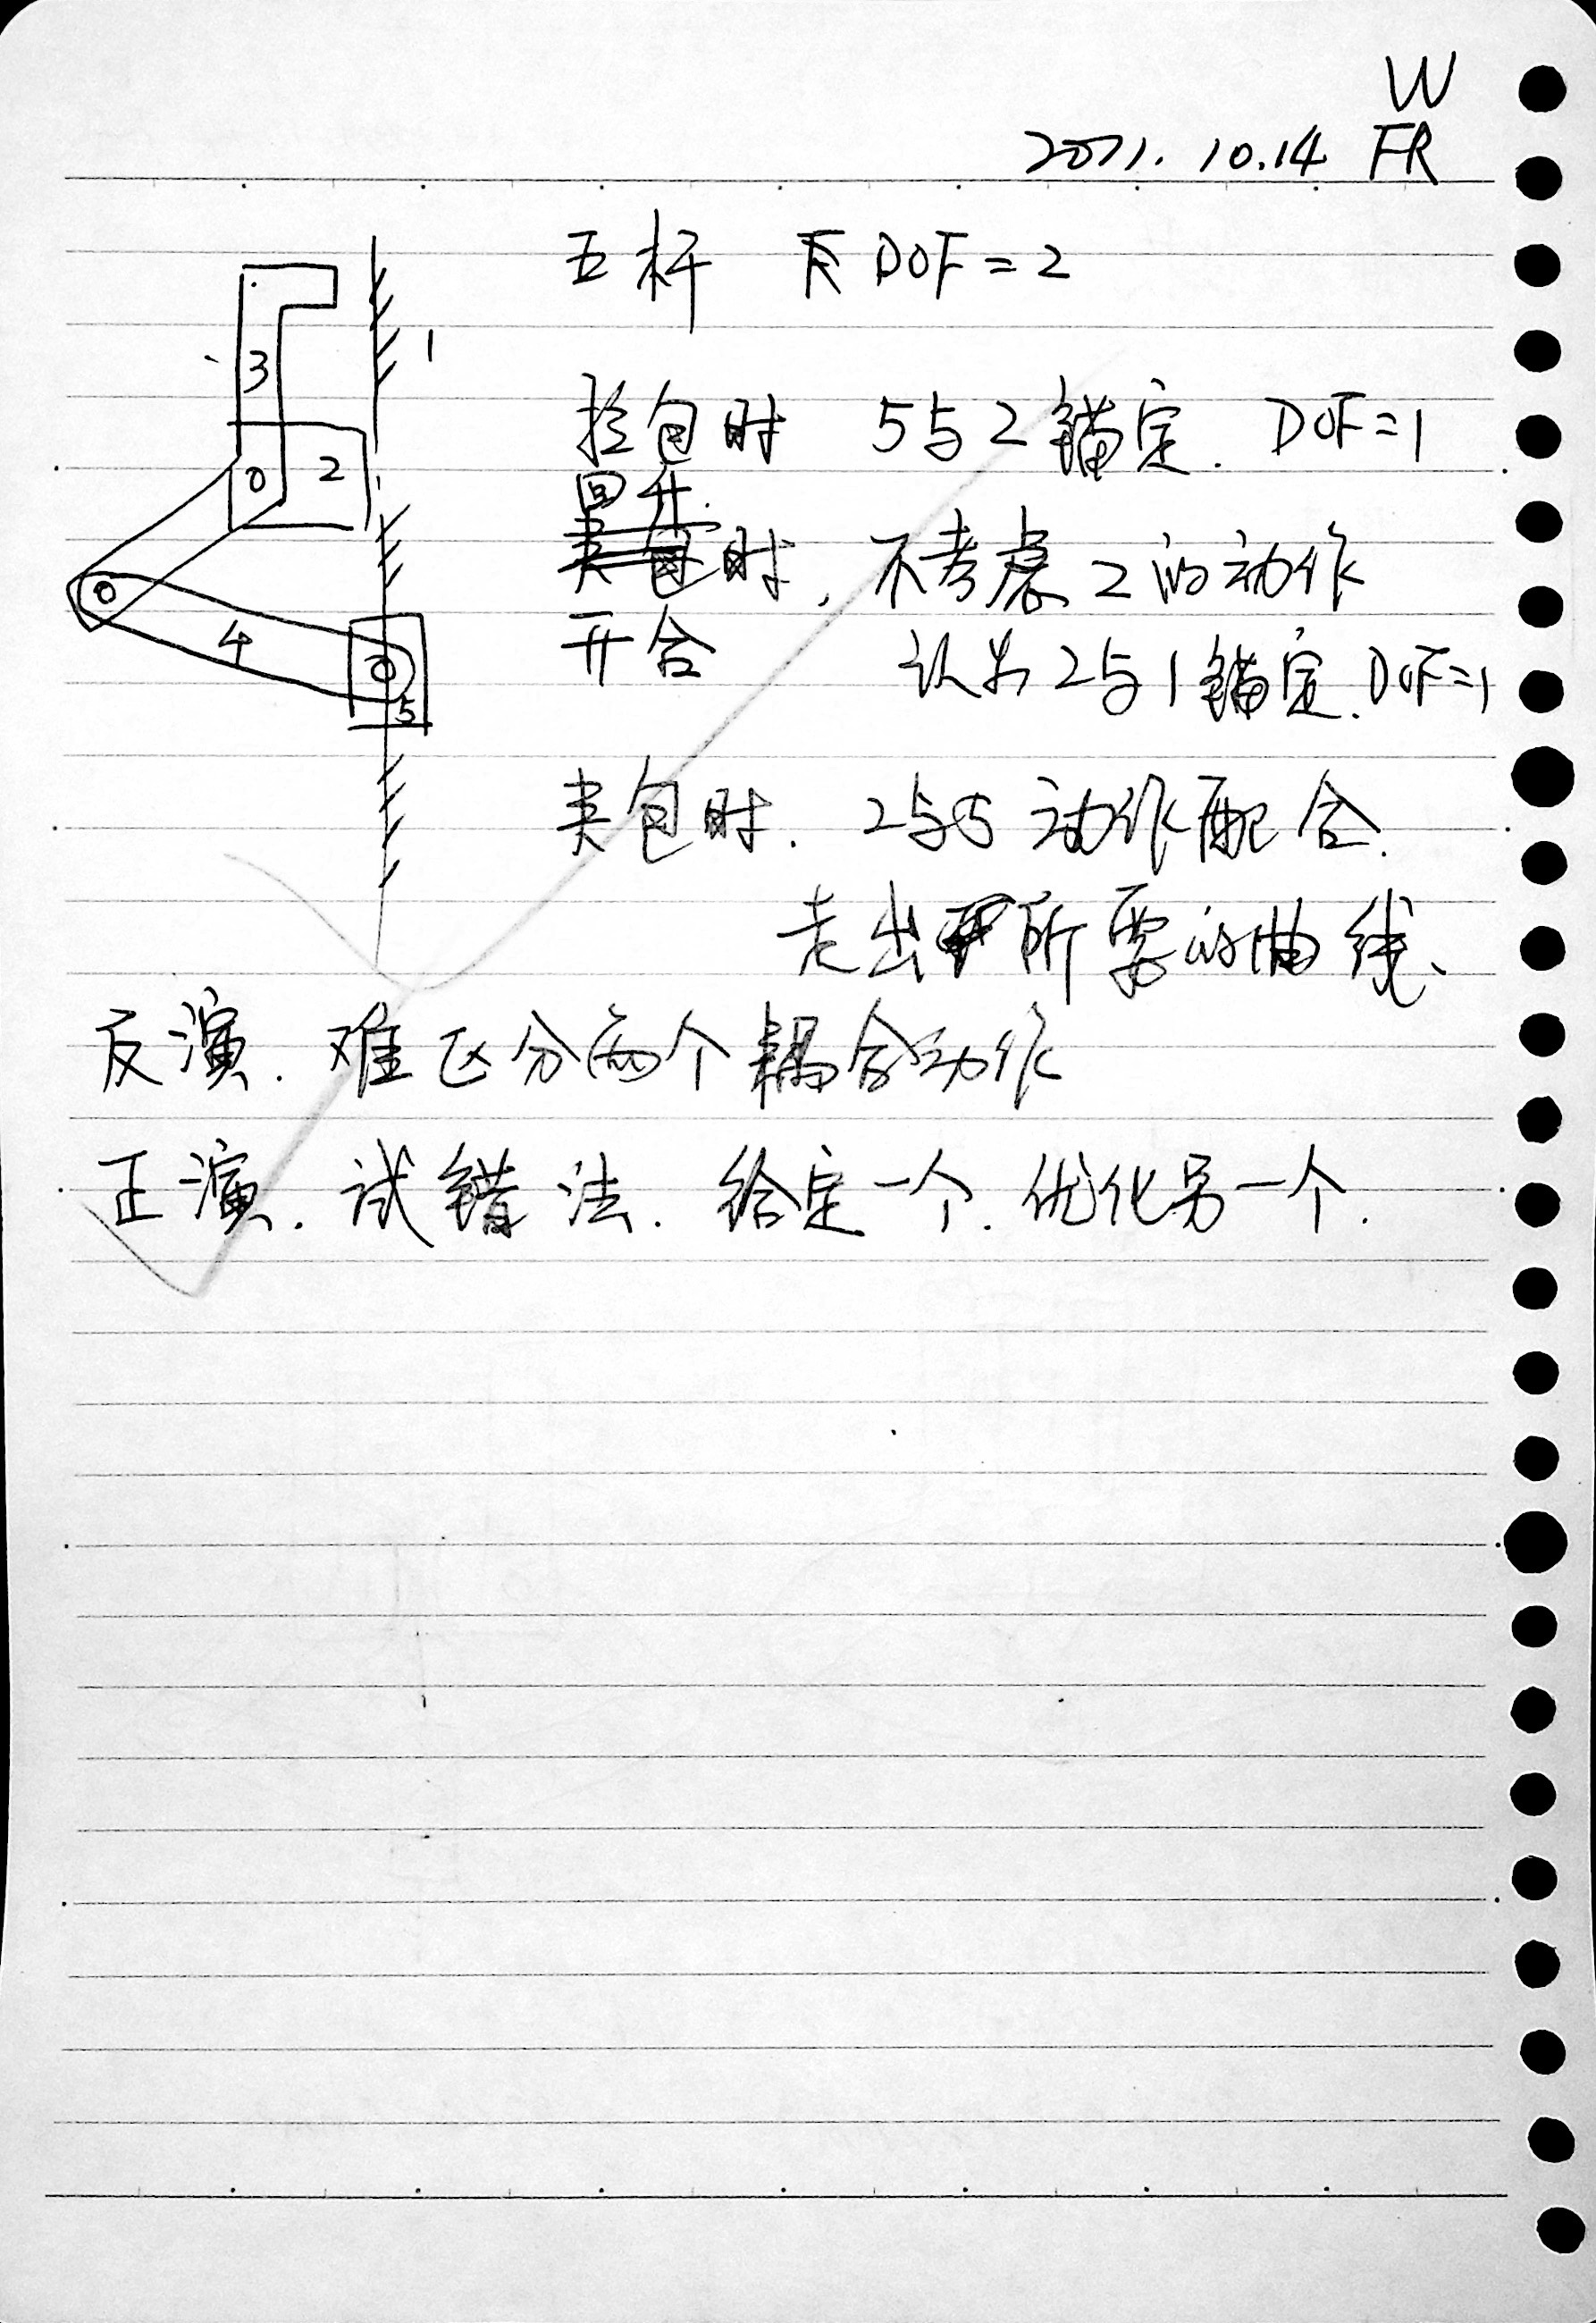 W
2011.10.14 FR
五杆 DOF=2
拴包时 5与2锚定. DOF=1
回升.
夹包时, 不考虑2的动作
开合 认为2与1锚定. DOF=1
夹包时. 2与5动作配合.
走出所要的曲线、
反演. 难区分两个耦合动作
正演. 试错法. 给定一个. 优化另一个.
1
3
2
4
5